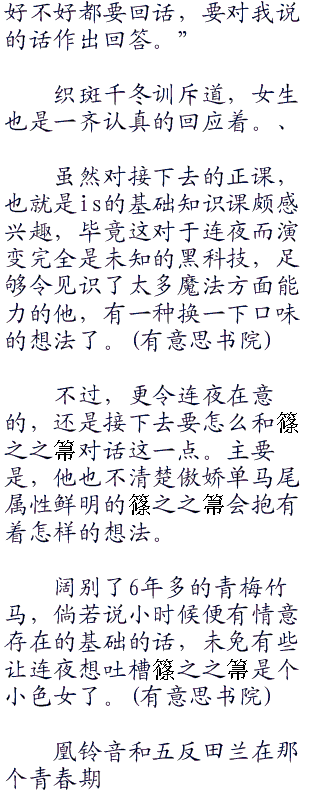 好不好都要回话，要对我说
的话作出回答。”
织斑千冬训斥道，女生
也是一齐认真的回应着。、
虽然对接下去的正课，
也就是is的基础知识课颇感
兴趣，毕竟这对于连夜而演
变完全是未知的黑科技，足
够令见识了太多魔法方面能
力的他，有一种换一下口味
的想法了。(有意思书院)
不过，更令连夜在意
的，还是接下去要怎么和篠
之之箒对话这一点。主要
是，他也不清楚傲娇单马尾
属性鲜明的篠之之箒会抱有
着怎样的想法。
阔别了6年多的青梅竹
马，倘若说小时候便有情意
存在的基础的话，未免有些
让连夜想吐槽篠之之箒是个
小色女了。(有意思书院)
凰铃音和五反田兰在那
个青春期